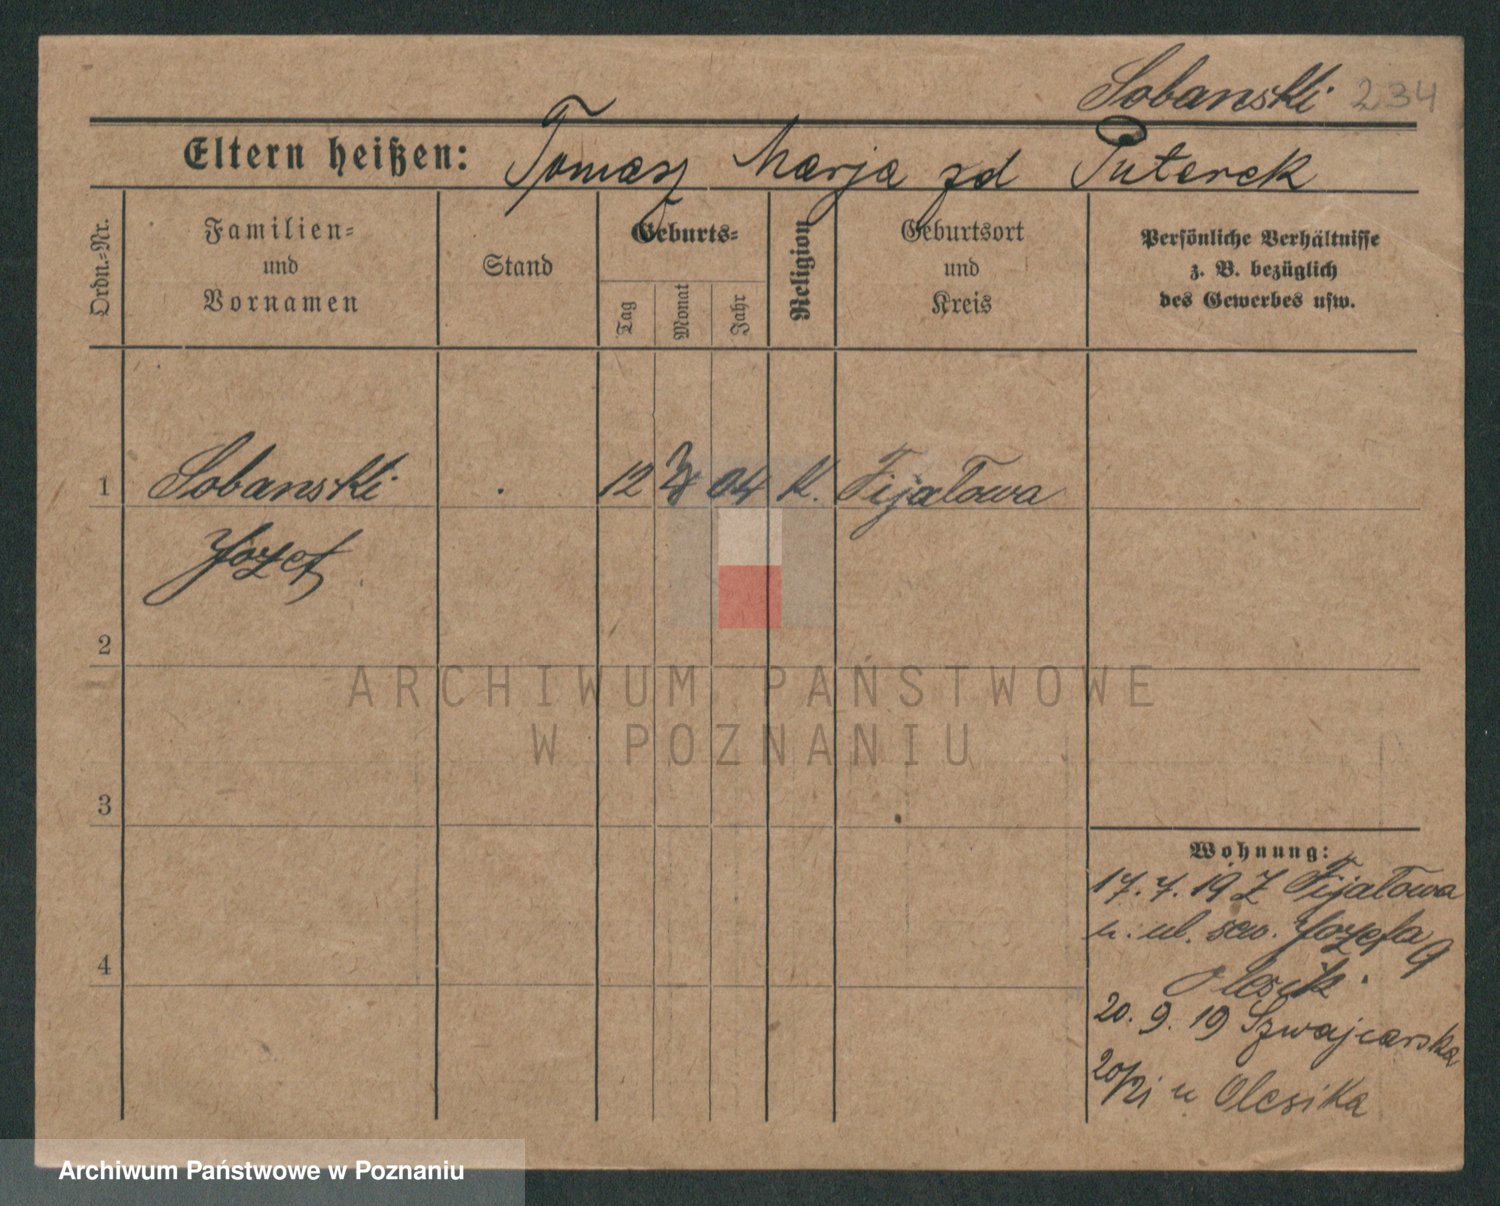 Sobanski 234
Eltern heißen: Tomasz Marja zd Puterek
Ordn.-Nr.
Familien=
und
Vornamen
Stand
Geburts=
Tag
Monat
Jahr
Religion
Geburtsort
und
Kreis
Persönliche Verhältnisse
z. B. bezüglich
des Gewerbes usw.
1 Sobanski 12 04 K. Fijałowa
Józef
2
ARCHIWUM PAŃSTWOWE
W POZNANIU
3
Wohnung:
17.7.19 Z Fijałowa
u. ul. św. Józefa 9
Olesik.
4
20. 9. 19 Szwajcarska
u Olesika
Archiwum Państwowe w Poznaniu